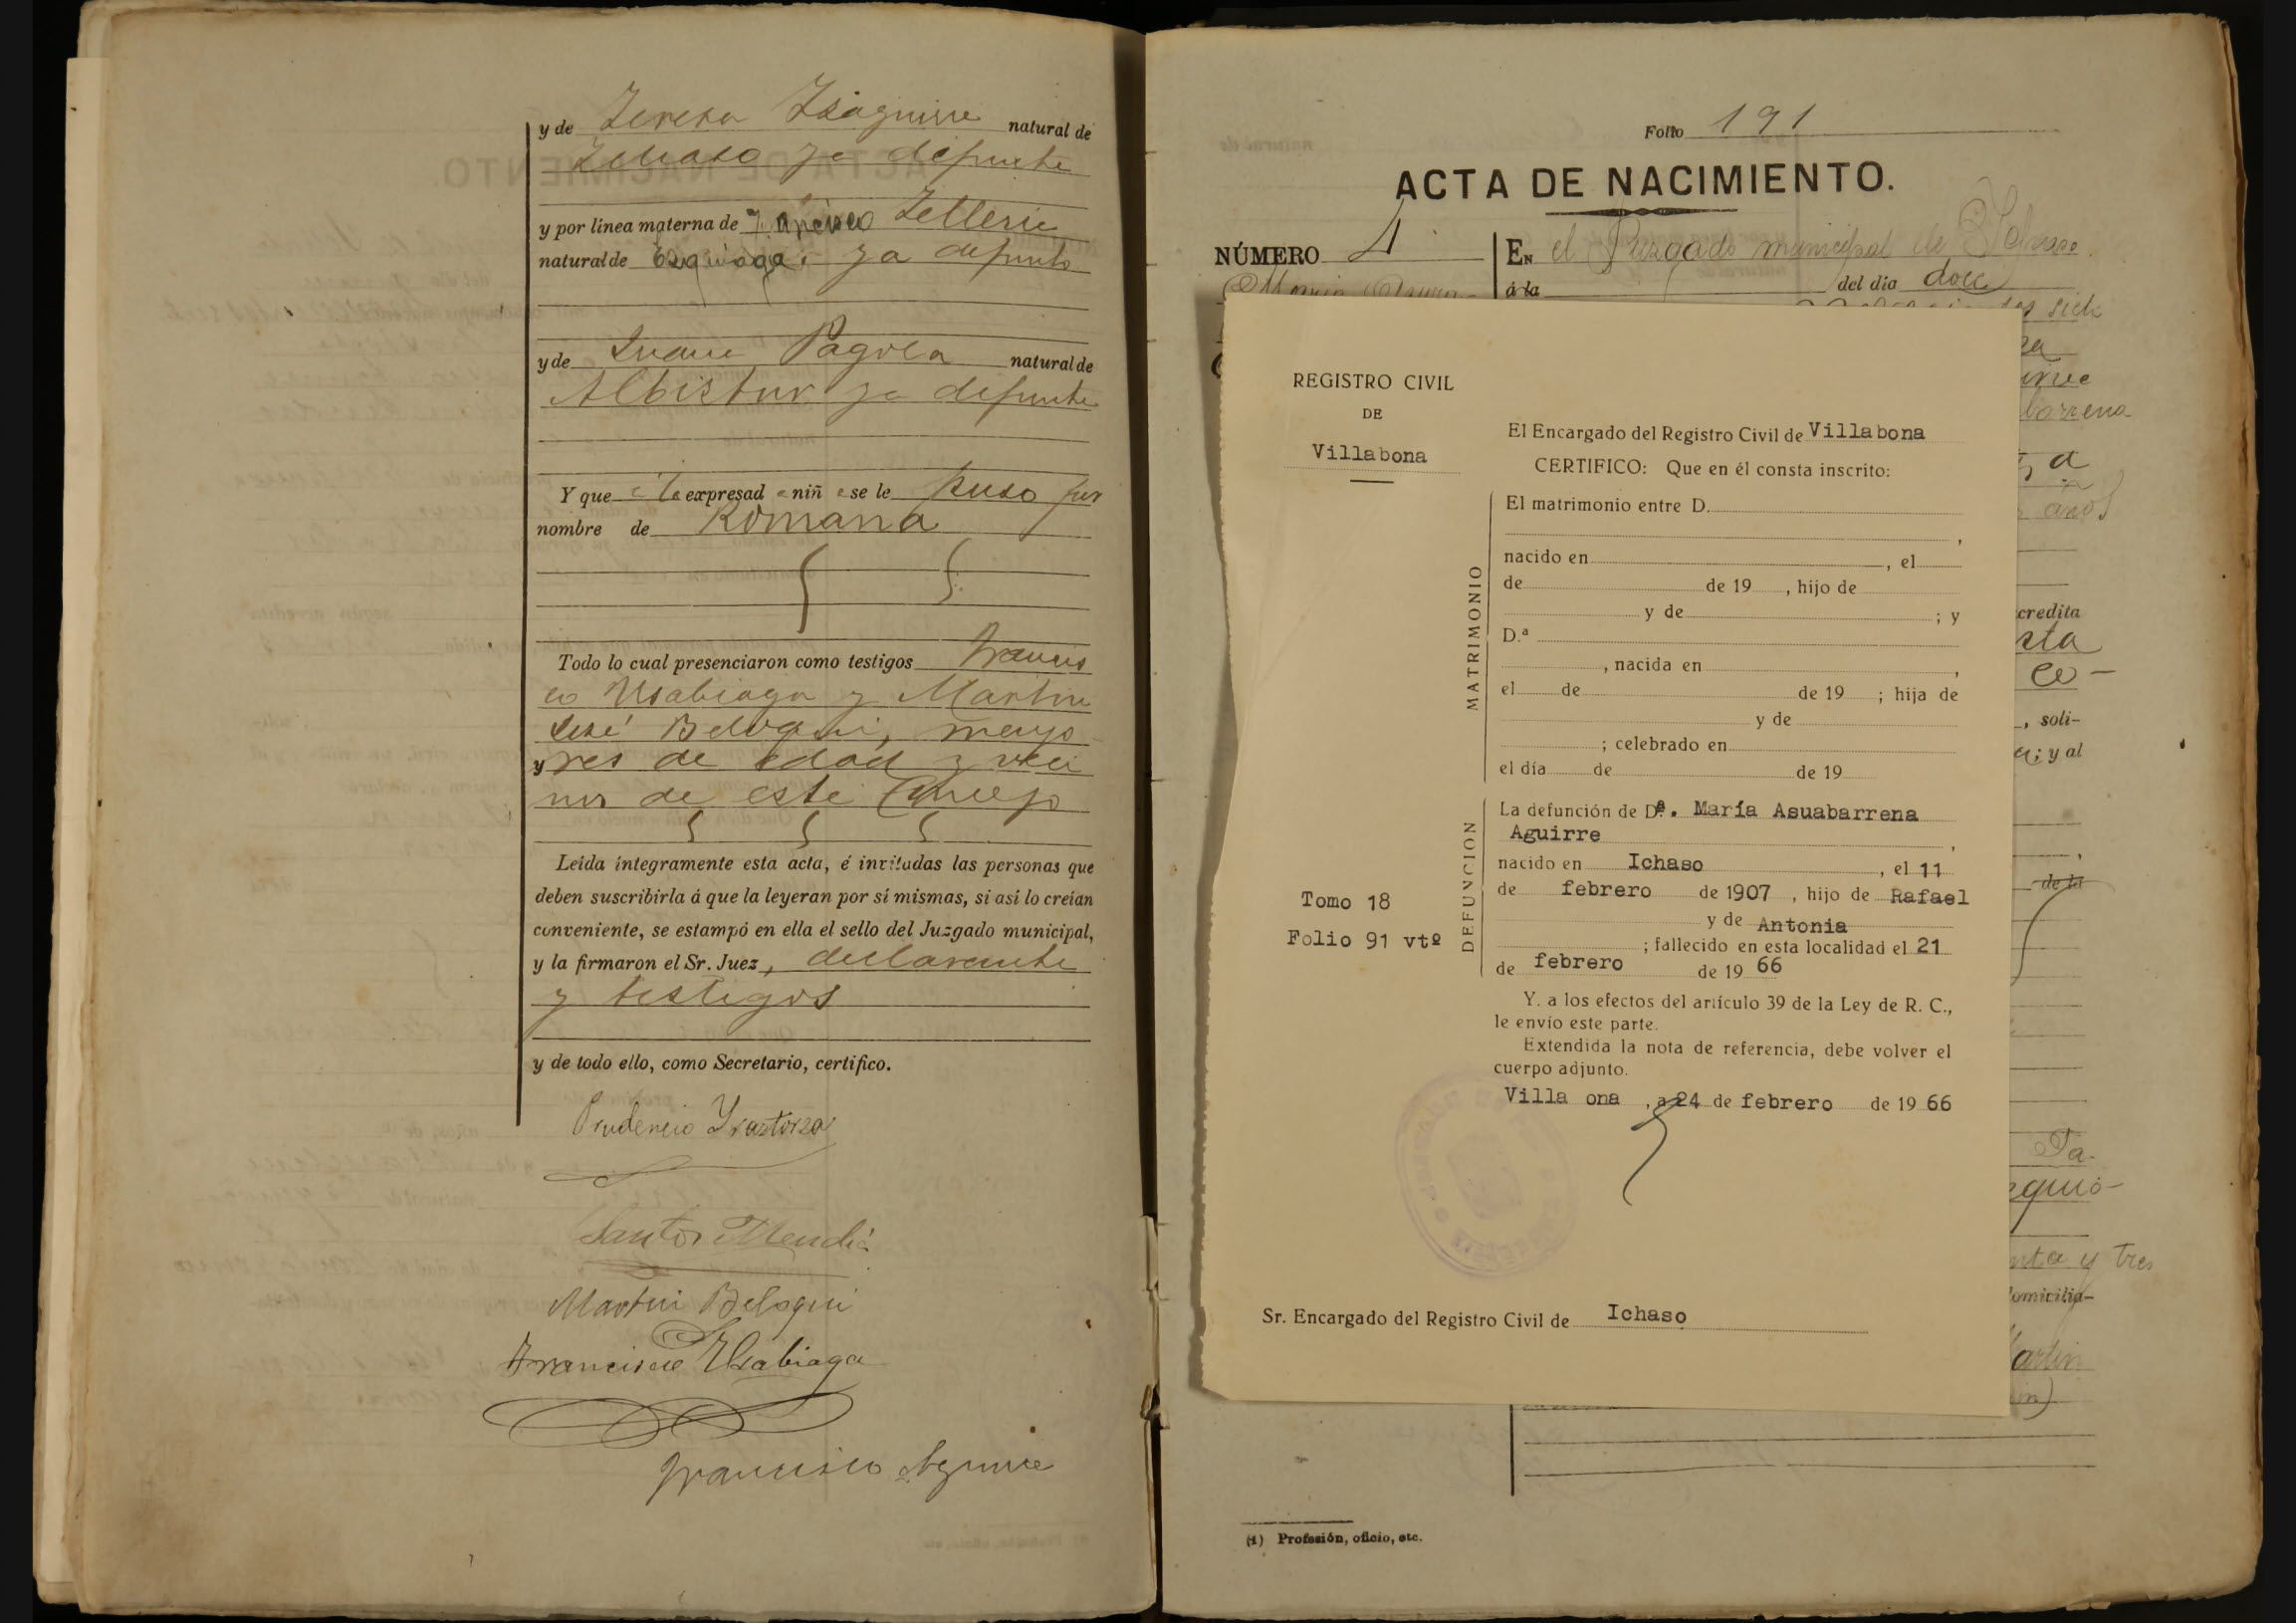 y de Teresa Izaguirre natural de
Ichaso ya difunta
y por línea materna de Francisco Telleria
natural de Ezquioga ya difunto
y de Juana Pagola natural de
Albistur ya difunta
Y que á la expresad a niñ a se le puso por
nombre de Romana
Todo lo cual presenciaron como testigos Francis
co Usabiaga y Martin
José Beloqui, mayo
y res de edad y veci
nos de este Concejo
Leída íntegramente esta acta, é invitadas las personas que
deben suscribirla á que la leyeran por sí mismas, si así lo creían
conveniente, se estampó en ella el sello del Juzgado municipal,
y la firmaron el Sr. Juez, declarante
y testigos
y de todo ello, como Secretario, certifico.
Prudencio Yraztorza
Santos Mendia
Martin Beloqui
Francisco Usabiaga
Francisco Aguirre
Folio 191
ACTA DE NACIMIENTO.
NÚMERO 4
EN el Juzgado municipal de Ichaso
á la del dia doce
siete
REGISTRO CIVIL
DE
Villabona
El Encargado del Registro Civil de Villabona
CERTIFICO: Que en él consta inscrito:
MATRIMONIO
El matrimonio entre D.
,
nacido en , el
de de 19 , hijo de
y de ; y
D.ª
, nacida en ,
el de de 19 ; hija de
y de
; celebrado en
el día de de 19
DEFUNCION
La defunción de Dª. María Asuabarrena
Aguirre ,
nacido en Ichaso , el 11
de febrero de 1907 , hijo de Rafael
y de Antonia
; fallecido en esta localidad el 21
de febrero de 19 66
Tomo 18
Folio 91 vtº
Y. a los efectos del artículo 39 de la Ley de R. C.,
le envío este parte.
Extendida la nota de referencia, debe volver el
cuerpo adjunto.
Villa ona , a 24 de febrero de 19 66
Sr. Encargado del Registro Civil de Ichaso
barrena
años
credita
, soli-
; y al
de la
nta y tres
domicilia-
artin
(1) Profesión, oficio, etc.